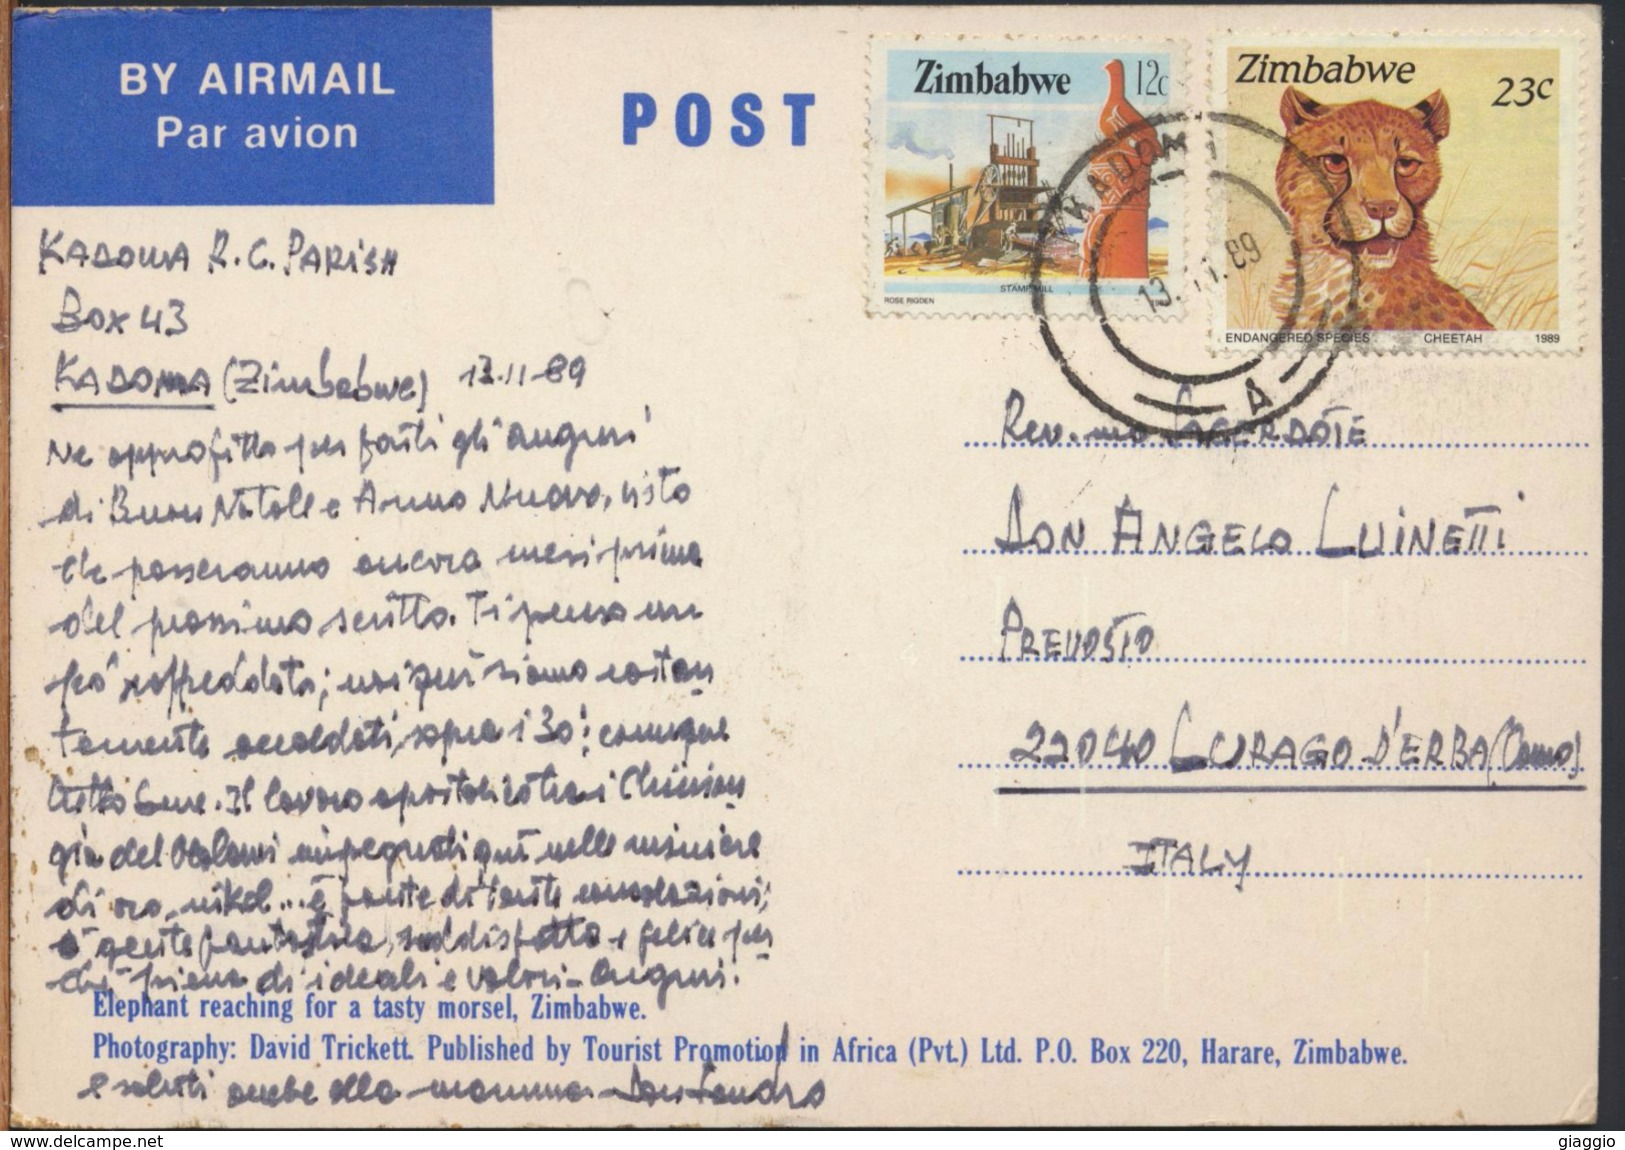 BY AIRMAIL
Par avion
POST
Zimbabwe 12c
STAMP MILL
ROSE RIGDEN
Zimbabwe
23c
ENDANGERED SPECIES CHEETAH 1989
KADOMA
13. 11. 89
A
KADOMA R.C. PARISH
Box 43
KADOMA (Zimbabwe) 13-11-89
Ne approfitto per farti gli auguri
di Buon Natale e Anno Nuovo, visto
che passeranno ancora mesi prima
del prossimo scritto. Ti penso un
po' raffreddata; noi qui siamo costan
temente accaldati, sopra i 30°; comunque
tutto bene. Il lavoro apostolico tra i
del qui nelle miniere
di oro, nikel... è fonte di tante consolazioni;
è gente fantastica, soddisfatta e felice per
chè piena di ideali e valori - Auguri.
Elephant reaching for a tasty morsel, Zimbabwe.
Photography: David Trickett. Published by Tourist Promotion in Africa (Pvt.) Ltd. P.O. Box 220, Harare, Zimbabwe.
e saluti anche alla mamma Don Sandro
Rev.mo SACERDOTE
DON ANGELO LUINETTI
PREVOSTO
22040 LURAGO D'ERBA (Como)
ITALY
www.delcampe.net
giaggio